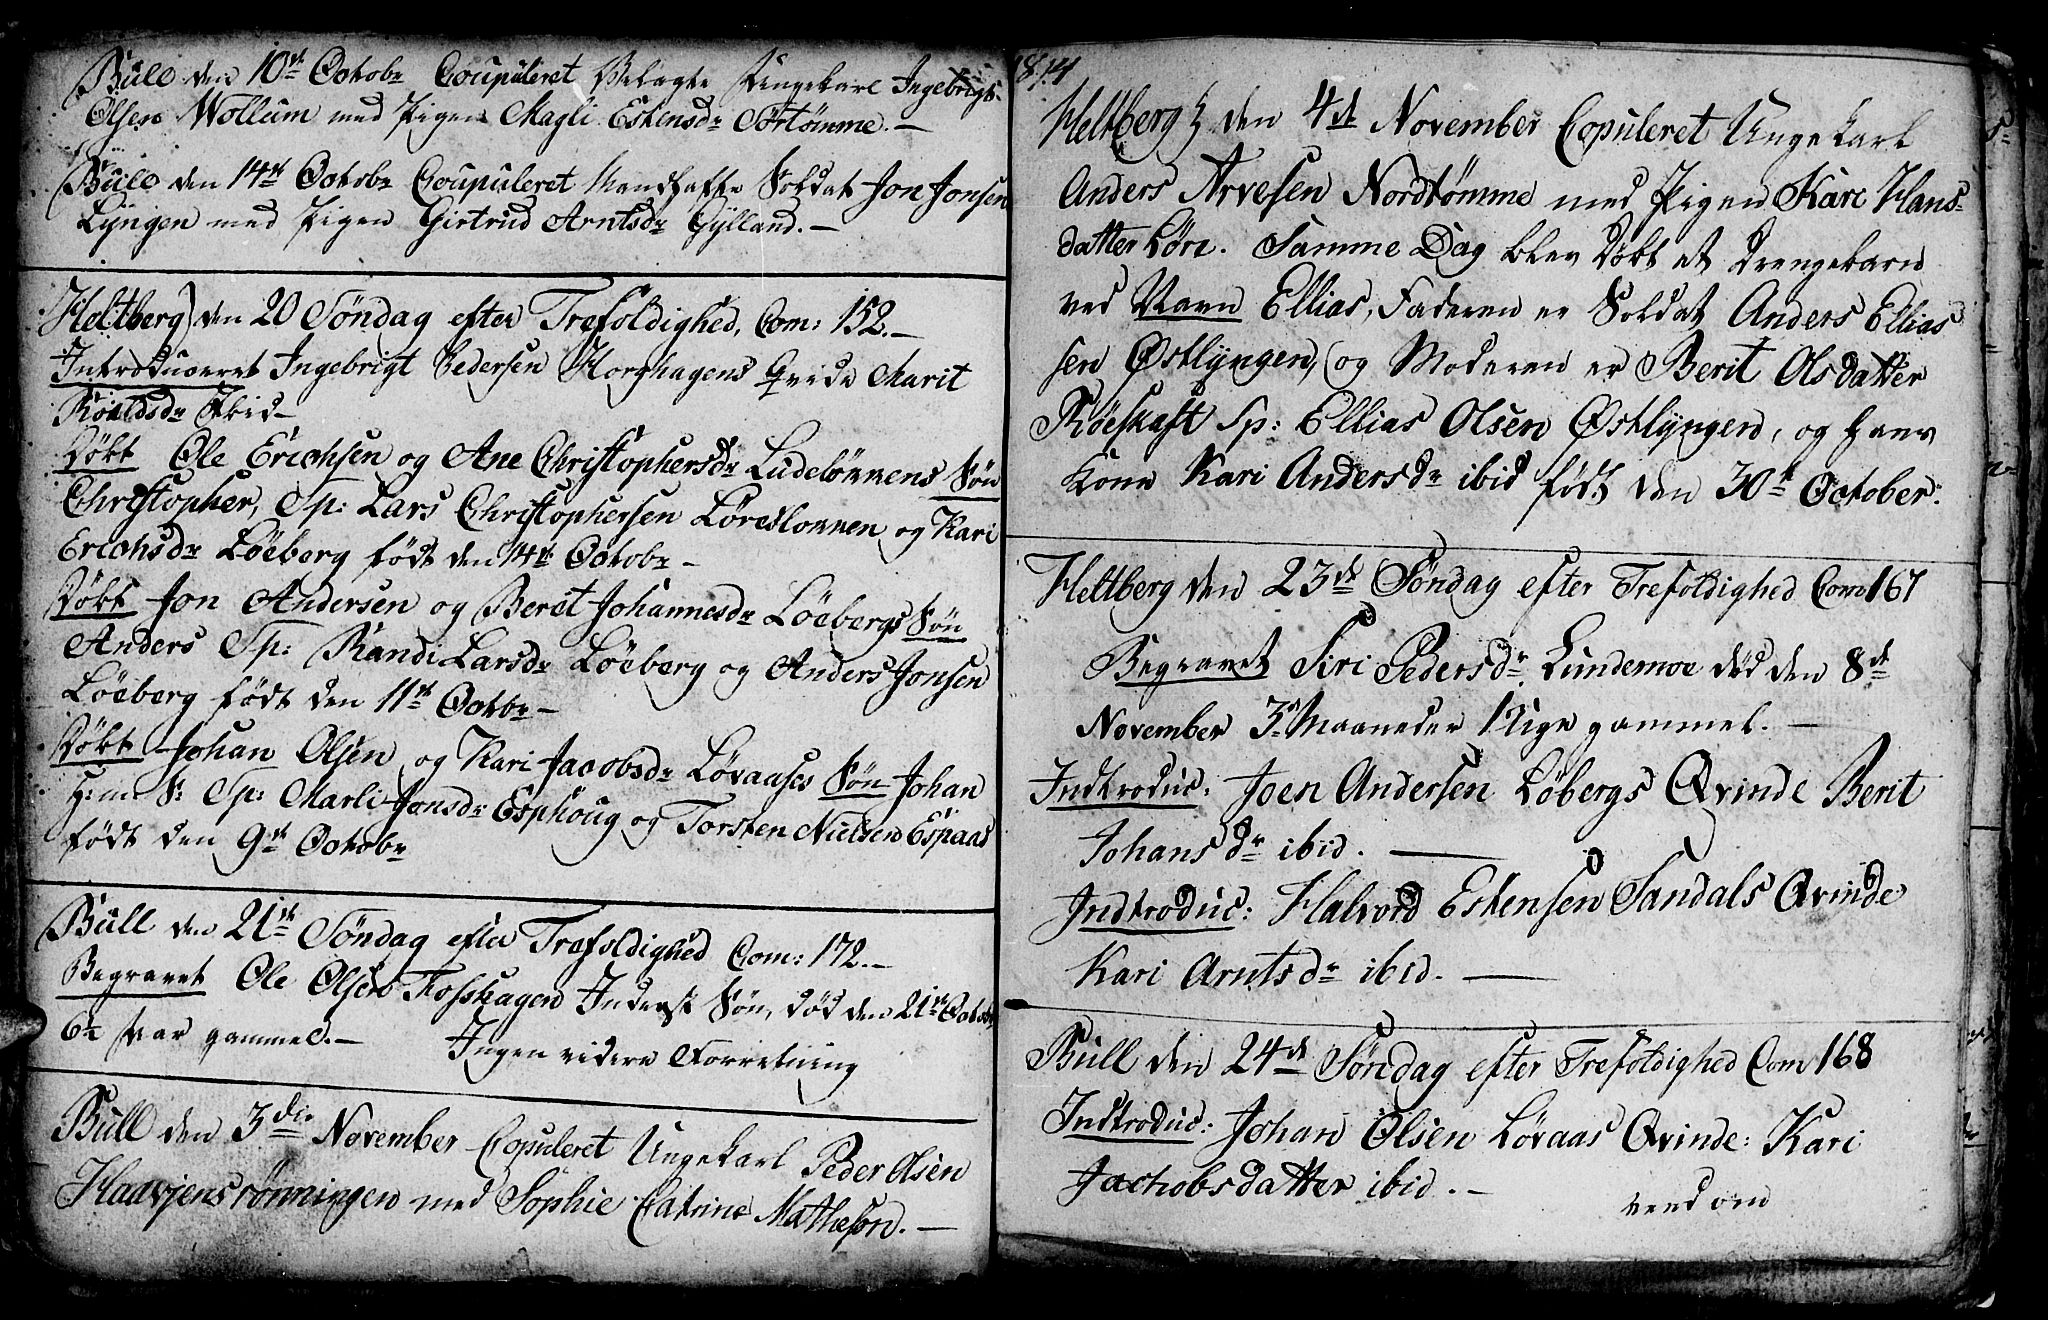 Bull den 10de Octobr Coupuleret Velagte Ungekarl Ingebrigt
Olsen Wollum med Pigen Magli Eskensdr Sørtømme.—
Bull den 14de Octobr Coupuleret Mandhafte Soldat Jon Jonsen
Lyngen med Pigen Girtrud Arntsdr Gylland.—
Heltberg) den 20 Søndag efter Trefoldighed, Com: 152.—
Introduceret Ingebrigt Pedersen Horghagens Qvide Marit
Roaldsdr Ibid—
Døbt Ole Erichsen og Ane Christophersdr Ludelovnens Søn
Christopher, Sp: Lars Christophersen Løreslovnen og Kari
Erichsdr Løeberg født den 14de Octobr—
Døbt Jon Andersen og Beret Johannesdr Løebergs Søn
Anders Sp: Randi Larsdr Løeberg og Anders Jonsen
Løeberg født den 11te Octobr—
Døbt Johan Olsen og Kari Jacobsdr Løvaases Søn Johan
H: m: S: Sp: Marli Jonsdr Esphoug og Torsten Nielsen Espaas
født den 9de Octobr
Bull den 21de Søndag efter Trefoldighed Com: 172.—
Begravet Ole Olsen Fosshagen Inderst Søn, død den 21de Octobr
6½ Aar gammel.— Ingen videre Forretning
Bull den 3die November Copuleret Ungekarl Peder Olsen
Haavjensrønningen med Sophie Catrine Matheson.—
1814
Heltberg den 4de November Copuleret Ungekarl
Anders Arvesen Nordtømme med Pigen Kari Hans-
datter Løre. Samme Dag blev Døbt et Drengebarn
ved Navn Ellias, Faderen er Soldat Anders Ellias
sen Østlyngen, og Moderen er Berit Olsdatter
Røeskaft Sp: Ellias Olsen Østlyngen, og hans
Kone Kari Andersdr ibid født den 30te October.
Heltberg den 23de Søndag efter Trefoldighed Com 167
Begravet Siri Pedersdr Lundemoe død den 8de
November 3 Maaneder 1 Uge gammel.—
Indtroduc: Joen Andersen Løbergs Qvinde Berit
Johansdr ibid.—
Indtroduc: Halvord Eskensen Sandals Qvinde
Kari Arntsdr ibid.—
Bull den 24de Søndag efter Trefoldighed Com 168
Indtroduc: Johan Olsen Løvaas Qvinde: Kari
Jachobsdatter ibid.—
vend om